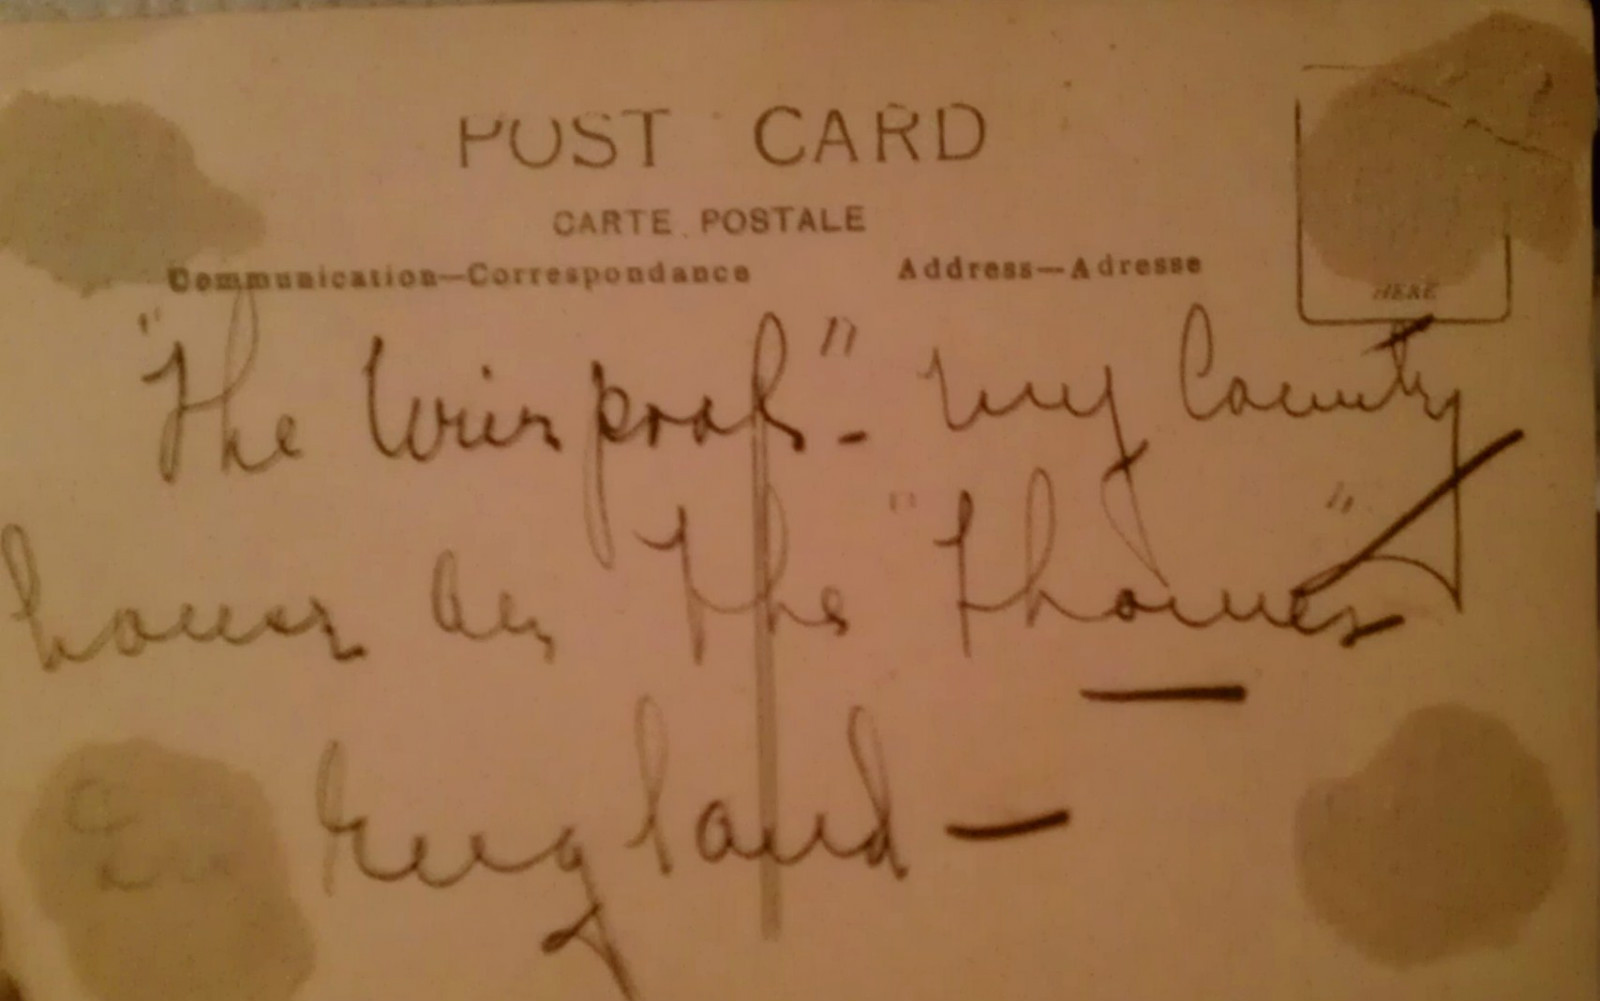 POST CARD
CARTE POSTALE
Communication—Correspondance Address—Adresse
HERE
"The " - my County
house on The "Thames"
In England —